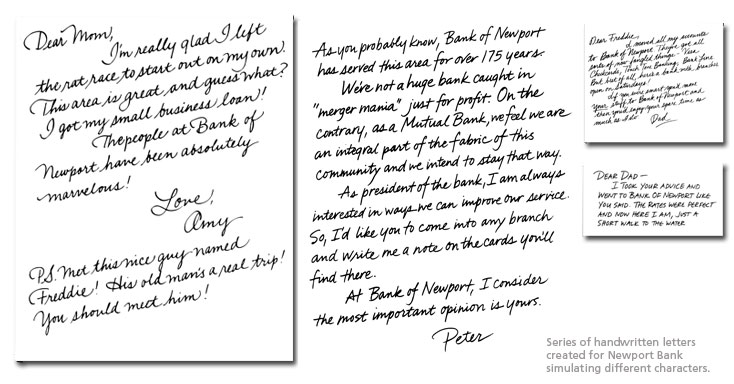 Dear Mom,
I'm really glad I left
the rat race to start out on my own.
This area is great, and guess what?
I got my small business loan!
The people at Bank of
Newport have been absolutely
marvelous!
Love,
Amy
P.S. Met this nice guy named
Freddie! His old man's a real trip!
You should meet him!
As you probably know, Bank of Newport
has served this area for over 175 years.
We're not a huge bank caught in
"merger mania" just for profit. On the
contrary, as a Mutual Bank, we feel we are
an integral part of the fabric of this
community and we intend to stay that way.
As president of the bank, I am always
interested in ways we can improve our service.
So, I'd like you to come into any branch
and write me a note on the cards you'll
find there.
At Bank of Newport, I consider
the most important opinion is yours.
Peter
Dear Freddie,
I moved all my accounts
to Bank of Newport. They've got all
sorts of new fangled things: Visa
Checkcards, Touch Tone Banking, Bank Line
But best of all, here's a bank with branches
open on Saturdays!
If you were smart you'd move
your stuff to Bank of Newport and
then you'd enjoy your spare time as
much as I do!
Dad
DEAR DAD —
I TOOK YOUR ADVICE AND
WENT TO BANK OF NEWPORT LIKE
YOU SAID. THE RATES WERE PERFECT
AND NOW HERE I AM, JUST A
SHORT WALK TO THE WATER
Series of handwritten letters
created for Newport Bank
simulating different characters.